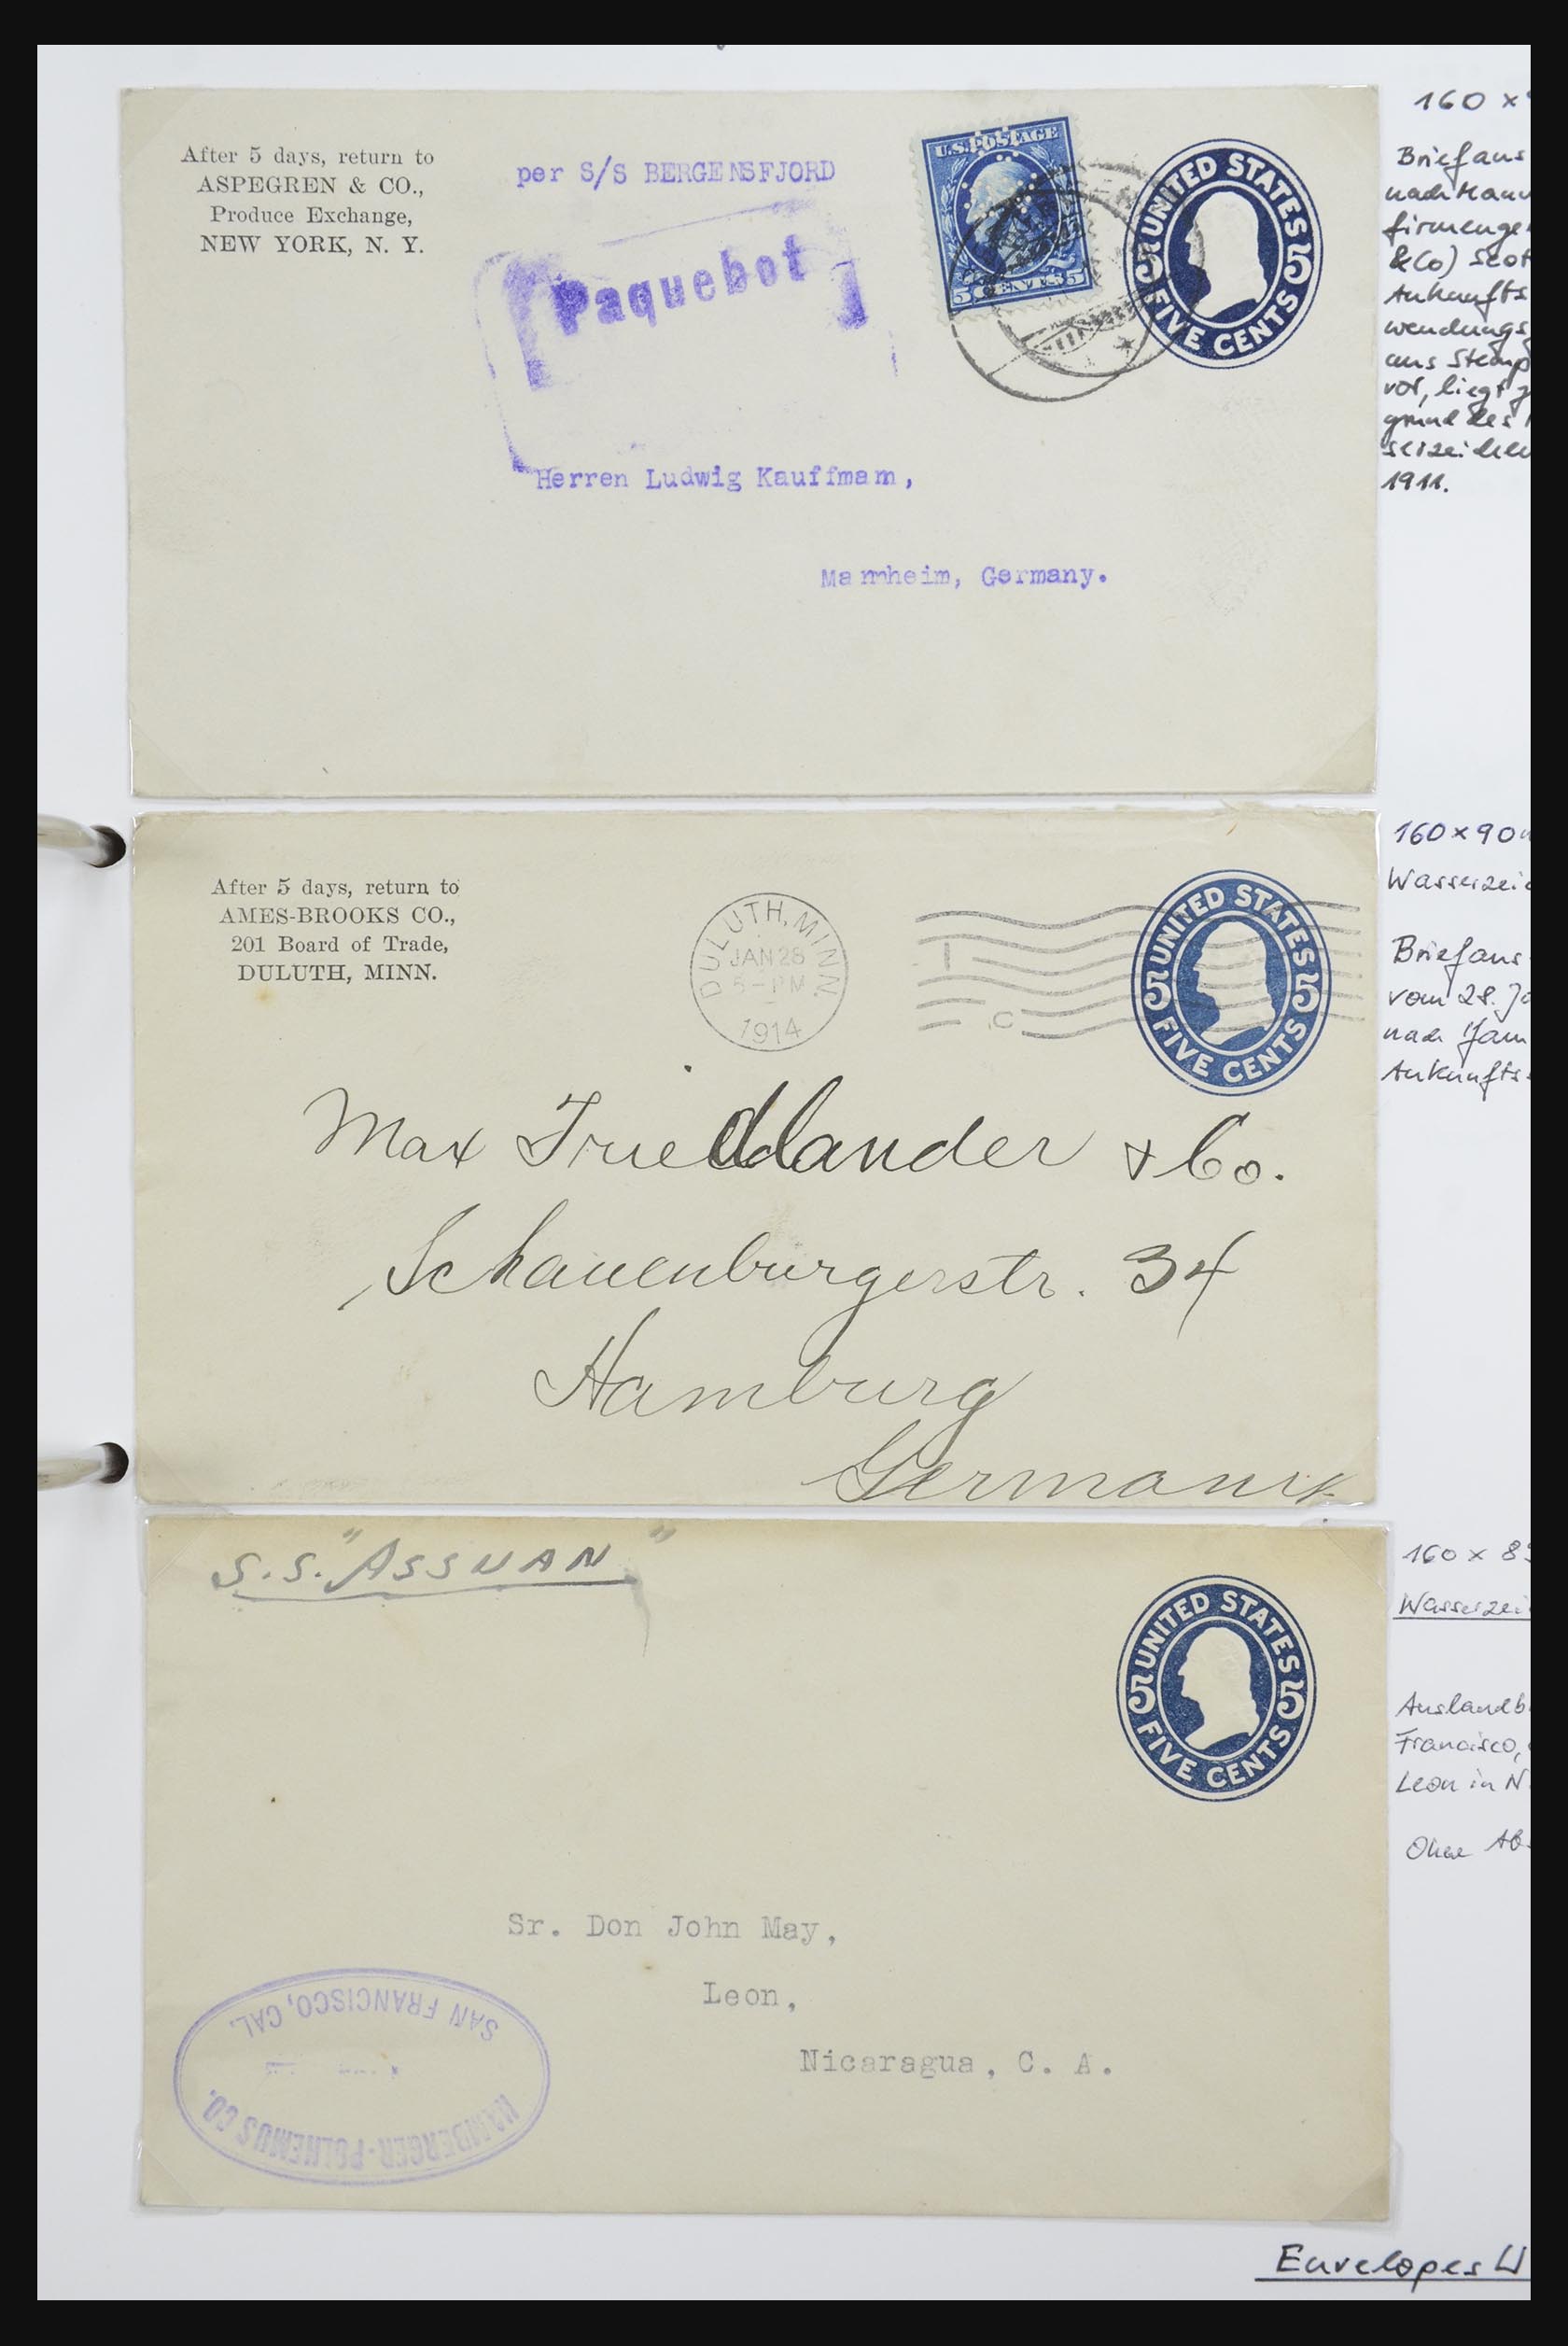 After 5 days, return to
ASPEGREN & CO.,
Produce Exchange,
NEW YORK, N. Y.
per S/S BERGENSFJORD
Paquebot
U.S. POSTAGE
5 CENTS 5
UNITED STATES
5 5
FIVE CENTS
Herren Ludwig Kauffmam,
Mannheim, Germany.
160 x
Brief aus
nach Mann
firmenge
& Co) Scot
Ankunfts
wendungs
aus Stemp
vor, liegt
grund des
serzeichen
1911.
After 5 days, return to
AMES-BROOKS CO.,
201 Board of Trade,
DULUTH, MINN.
DULUTH, MINN.
JAN 28
5-PM
1914
C
UNITED STATES
5 5
FIVE CENTS
Max Friedlander & Co.
Schauenburgerstr. 34
Hamburg
Germany
160 x 90
Wasserzeic
Brief aus
vom 28. Ja
nach Ham
Ankunfts
S.S. "ASSUAN"
UNITED STATES
5 5
FIVE CENTS
Sr. Don John May,
Leon,
Nicaragua, C. A.
HAMBERGER-POLHEMUS CO.
SAN FRANCISCO, CAL.
160 x 8
Wasserzei
Auslandb
Francisco,
Leon in N
Ohne Ab
Envelopes